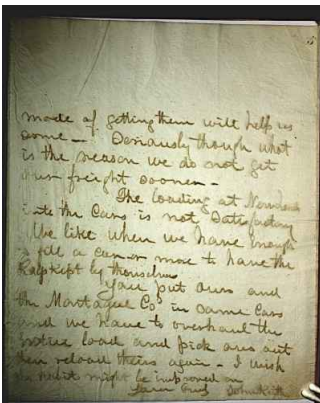 mode of getting them will help us
some — Seriously though what
is the reason we do not get
our freight sooner —
The loading at
into the Cars is not Satisfactory
We like when we have enough
to fill a car or more to have the
kept by themselves
You put ours and
the Montague Co's in same Cars
and we have to overhaul the
entire load and pick ours out
then reload theirs again — I wish
the habit might be improved on
Yours Truly